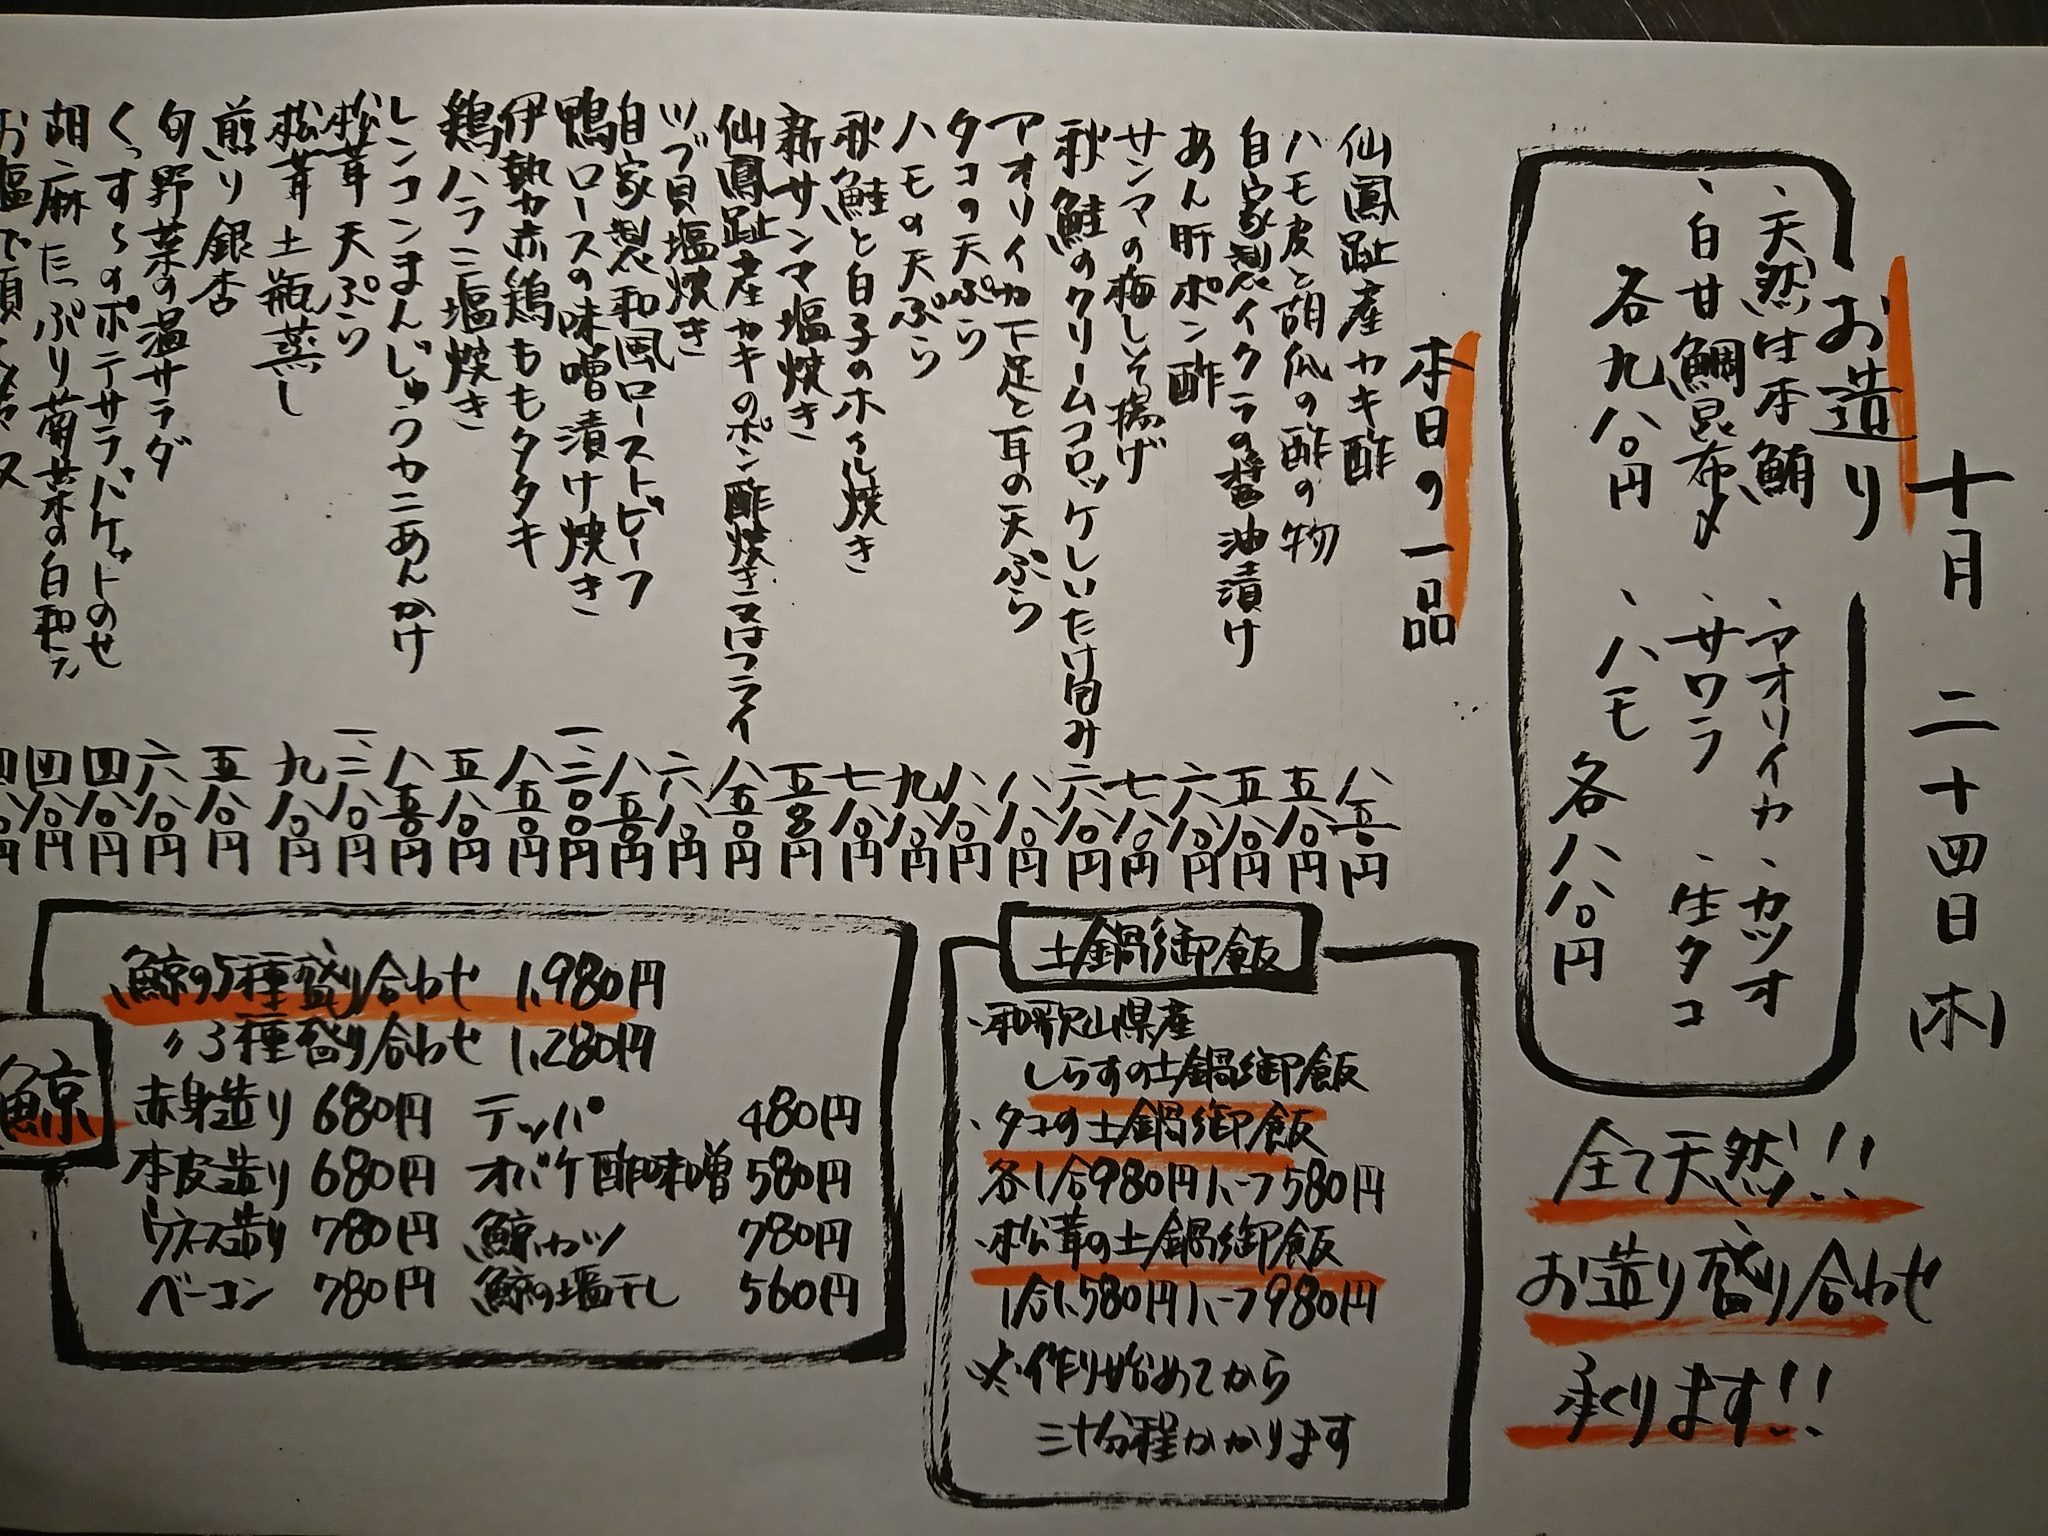 十月二十四日(木)
お造り
、天然生本鮪
、白甘鯛昆布〆
各九八〇円
、アオリイカ、カツオ
、サワラ、生タコ
、ハモ
各八八〇円
全て天然!!
お造り盛り合わせ
承ります!!
本日の一品
仙鳳趾産カキ酢 八五〇円
ハモ皮と胡瓜の酢の物 五八〇円
自家製イクラの醤油漬け 五八〇円
あん肝ポン酢 六八〇円
サンマの梅しそ揚げ 七八〇円
秋鮭のクリームコロッケしいたけ包み 六八〇円
アオリイカ下足と耳の天ぷら 八八〇円
タコの天ぷら 八八〇円
ハモの天ぷら 九八〇円
秋鮭と白子のホイル焼き 七八〇円
新サンマ塩焼き 五八〇円
仙鳳趾産カキのポン酢焼き又はフライ 八五〇円
ツブ貝塩焼き 六八〇円
自家製和風ローストビーフ 八五〇円
鴨ロースの味噌漬け焼き 一、二〇〇円
伊勢赤鶏ももタタキ 八五〇円
鶏ハラミ塩焼き 五八〇円
レンコンまんじゅうカニあんかけ 八五〇円
松茸天ぷら 一、二八〇円
松茸土瓶蒸し 九八〇円
煎り銀杏 五八〇円
旬野菜の温サラダ 六八〇円
くっすらのポテサラバケットのせ 四八〇円
胡麻たっぷり菊菜の白和え 四八〇円
お塩で頂く 四八〇円
土鍋御飯
、和歌山県産
しらすの土鍋御飯
、タコの土鍋御飯
各1合980円ハーフ580円
、松茸の土鍋御飯
1合1,580円ハーフ980円
※作り始めてから
三十分程かかります
鯨
鯨の5種盛り合わせ 1,980円
〃3種盛り合わせ 1,280円
赤身造り 680円 テッパ 480円
本皮造り 680円 オバケ酢味噌 580円
ウネス造り 780円 鯨カツ 780円
ベーコン 780円 鯨の塩干し 560円